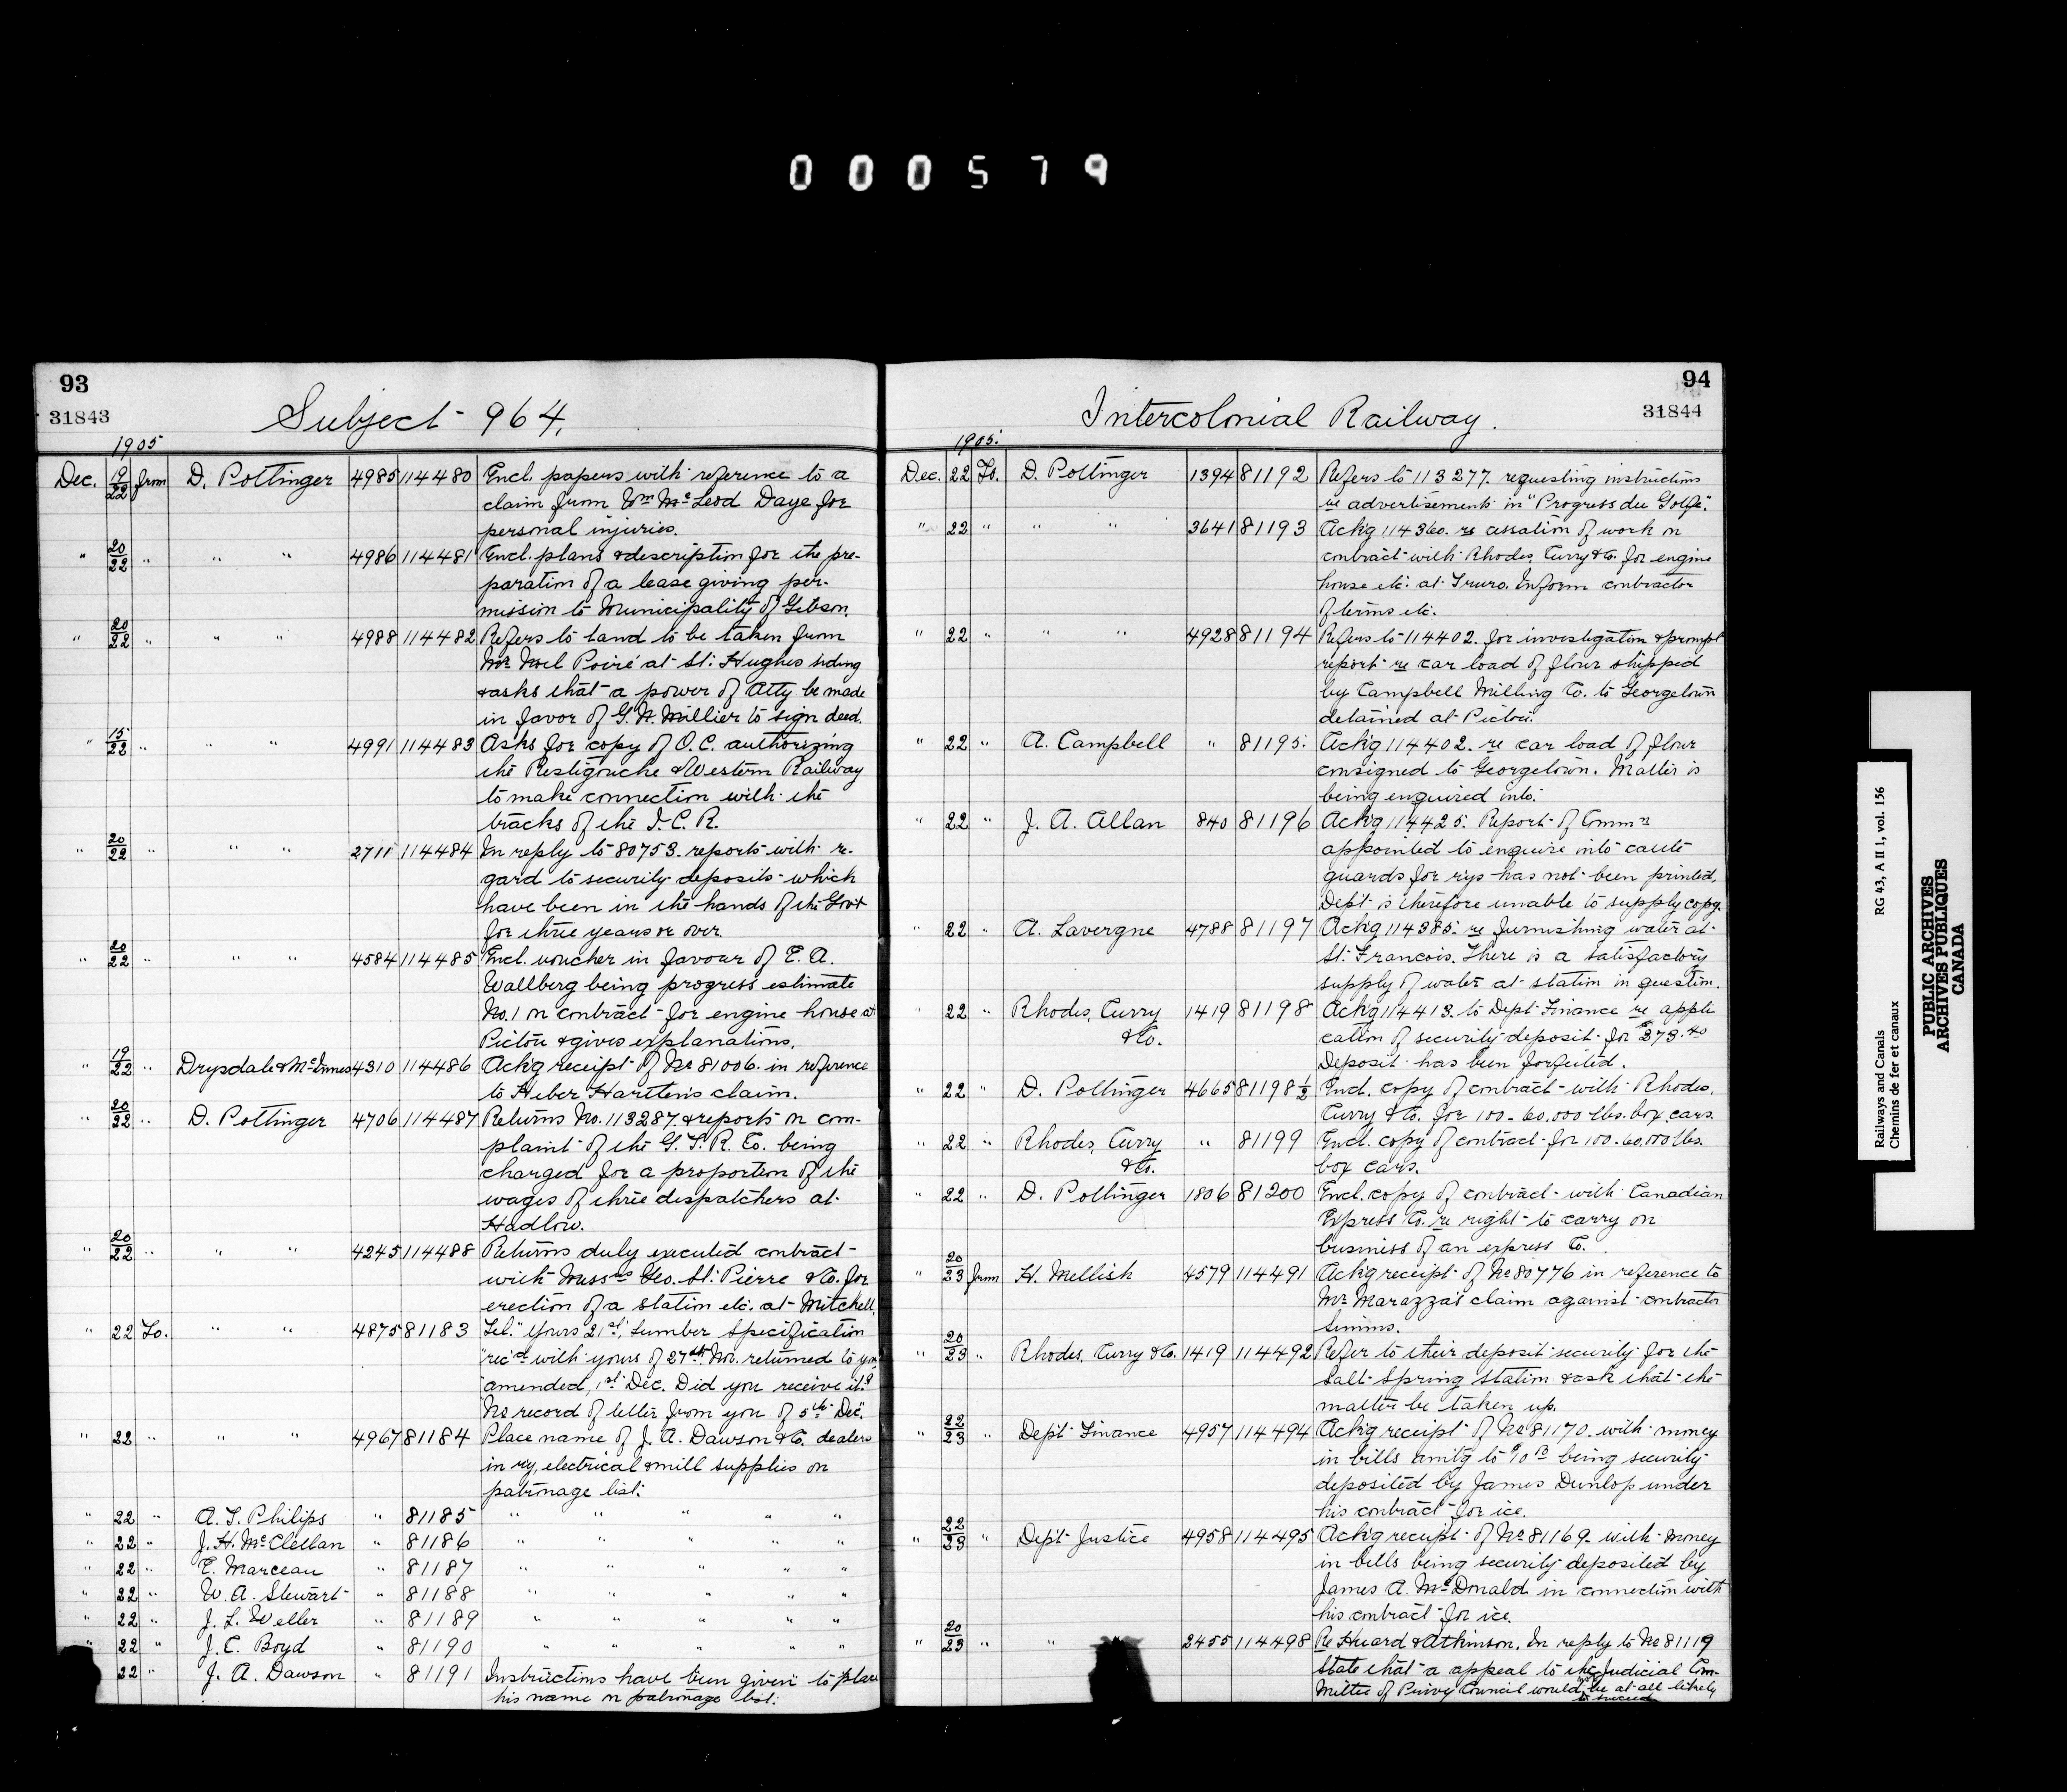 000579
93
31843
Subject 964.
1905
Dec. 19/22 from D. Pottinger 4985 114480 Encl. papers with reference to a
claim from Wm McLeod Daye for
personal injuries.
" 20/22 " " " 4986 114481 Encl. plans & description for the pre-
paration of a lease giving per-
mission to Municipality of Gibson.
" 20/22 " " " 4988 114482 Refers to land to be taken from
Mr Noel Poiré at St. Hughes siding
& asks that a power of Atty be made
in favor of G. N. Millier to sign deed.
" 15/22 " " " 4991 114483 Asks for copy of O.C. authorizing
the Restigouche & Western Railway
to make connection with the
tracks of the I.C.R.
" 20/22 " " " 2711 114484 In reply to 80753. reports with re-
gard to security deposits which
have been in the hands of the Govt
for three years or over.
" 20/22 " " " 4584 114485 Encl. voucher in favour of E. A.
Wallberg being progress estimate
No. 1 on contract for engine house at
Pictou & gives explanations.
" 19/22 " Drysdale & McInnes 4310 114486 Ackg receipt of No 81006. in reference
to Heber Hartlen's claim.
" 20/22 " D. Pottinger 4706 114487 Returns No. 113287. & reports on com-
plaint of the G.T.R. Co. being
charged for a proportion of the
wages of three dispatchers at
Hadlow.
" 20/22 " " " 4245 114488 Returns duly executed contract
with Messrs Geo. St. Pierre & Co. for
erection of a station etc. at Mitchell.
" 22 To. " " 4875 81183 Tel. "Yours 21st, lumber specification
"rec'd with yours of 27th Nov. returned to you
"amended, 1st Dec. Did you receive it?
No record of letter from you of 5th Dec."
" 22 " " " 4967 81184 Place name of J. A. Dawson & Co. dealers
in ry, electrical & mill supplies on
patronage list.
" 22 " A. T. Philips " 81185 " " " " "
" 22 " J. H. McClellan " 81186 " " " " "
" 22 " E. Marceau " 81187 " " " " "
" 22 " W. A. Stewart " 81188 " " " " "
" 22 " J. L. Weller " 81189 " " " " "
" 22 " J. C. Boyd " 81190 " " " " "
22 " J. A. Dawson " 81191 Instructions have been given to place
his name on patronage list.
94
31844
Intercolonial Railway.
1905.
Dec. 22 To. D. Pottinger 1394 81192 Refers to 113277. requesting instructions
re advertisement in "Progress du Golfe".
" 22 " " " 3641 81193 Ackg 114360. re cessation of work on
contract with Rhodes, Curry & Co. for engine
house etc. at Truro. Inform contractor
of terms etc.
" 22 " " " 4928 81194 Refers to 114402. for investigation & prompt
report re car load of flour shipped
by Campbell Milling Co. to Georgetown
detained at Pictou.
" 22 " A. Campbell " 81195. Ackg 114402. re car load of flour
consigned to Georgetown. Matter is
being enquired into.
" 22 " J. A. Allan 840 81196 Ackg 114425. Report of Commn
appointed to enquire into cattle
guards for rys has not been printed.
Dept is therefore unable to supply copy.
" 22 " A. Lavergne 4788 81197 Ackg 114385. re furnishing water at
St. Francois. There is a satisfactory
supply of water at station in question.
" 22 " Rhodes, Curry 1419 81198 Ackg 114413. to Dept Finance re appli
& Co. cation of security deposit for $373.40
Deposit has been forfeited.
" 22 " D. Pottinger 4665 81198½ Encl. copy of contract with Rhodes,
Curry & Co. for 100 - 60,000 lbs. box cars.
" 22 " Rhodes, Curry " 81199 Encl. copy of contract for 100 - 60,000 lbs.
& Co. box cars.
" 22 " D. Pottinger 1806 81200 Encl. copy of contract with Canadian
Express Co. re right to carry on
business of an express Co.
" 20/23 from H. Mellish 4579 114491 Ackg receipt of No 80776 in reference to
Mr Marazza's claim against contractor
Simms.
" 20/23 " Rhodes, Curry & Co. 1419 114492 Refer to their deposit security for the
Salt Spring station & ask that the
matter be taken up.
" 22/23 " Dept Finance 4957 114494 Ackg receipt of No 81170. with money
in bills amtg to being security
deposited by James Dunlop under
his contract for ice.
" 22/23 " Dept Justice 4958 114495 Ackg receipt of No 81169. with money
in bills being security deposited by
James A. McDonald in connection with
his contract for ice.
" 20/23 " " 2455 114498 Re Huard & Atkinson. In reply to No 81119
state that a appeal to the Judicial Com-
mittee of Privy Council would not be at all likely
to succeed
Railways and Canals RG 43, A II 1, vol. 156
Chemins de fer et canaux
PUBLIC ARCHIVES
ARCHIVES PUBLIQUES
CANADA